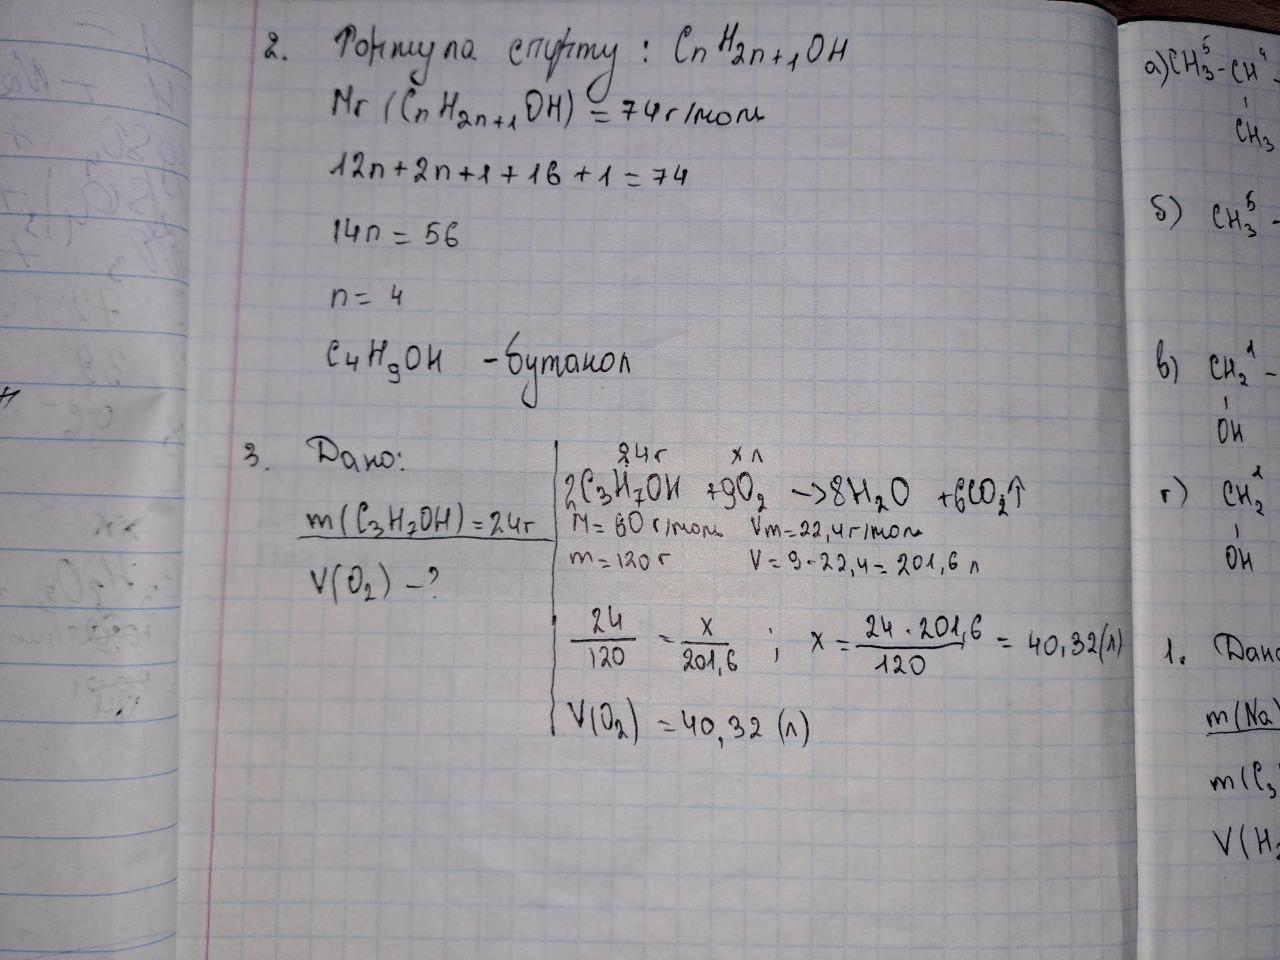 2. Формула спирту: CnH2n+1OH
Mr (CnH2n+1OH) = 74 г/моль
12n+2n+1+16+1=74
14n = 56
n = 4
C4H9OH - бутанол
3. Дано:
m(C3H7OH)=24г
V(O2) -?
24г x л
2C3H7OH +9O2 -> 8H2O +6CO2↑
M=60 г/моль Vm=22,4г/моль
m=120 г V=9·22,4=201,6 л
24/120 = x/201,6 ; x = 24·201,6/120 = 40,32(л)
V(O2) = 40,32 (л)
а) CH3-CH -
5 4
CH3
б) CH3 -
5
в) CH2 -
1
OH
г) CH2
1
OH
1. Дано
m(Na)
m(C3
V(H2